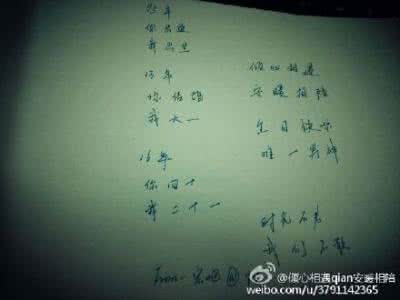 95年
你出道
我出生
15年
你结婚
我大一
16年
你四十
我二十一
倾心相遇
安暖相陪
生日快乐
唯一男神
时光不老
我们不散
From-
@倾心相遇qian安暖相陪
weibo.com/u/3791142365